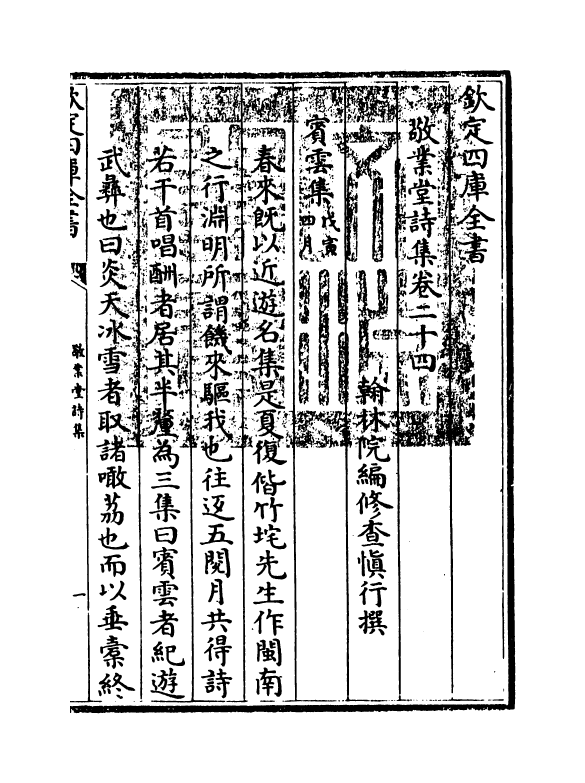 欽定四庫全書
敬業堂詩集卷二十四
翰林院編修查慎行撰
賓雲集戊寅四月
春來既以近遊名集是夏復偕竹垞先生作閩南
之行淵明所謂饑來驅我也往返五閱月共得詩
若干首唱酬者居其半釐為三集曰賓雲者紀遊
武彝也曰炎天冰雪者取諸噉荔也而以垂橐終
欽定四庫全書
敬業堂詩集
一